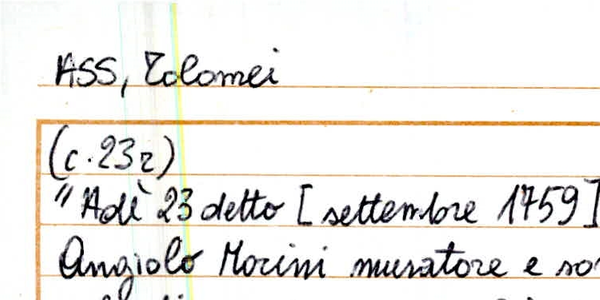 ASS, Tolomei
(c. 23r)
"Adì 23 detto [settembre 1759]
Angiolo Morini muratore e